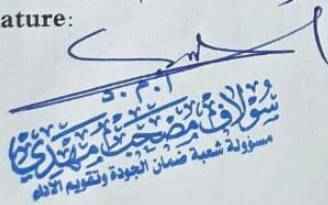 ature:
أ.م.د
سولاف مصحب مهدي
مسؤولة شعبة ضمان الجودة وتقويم الاداء